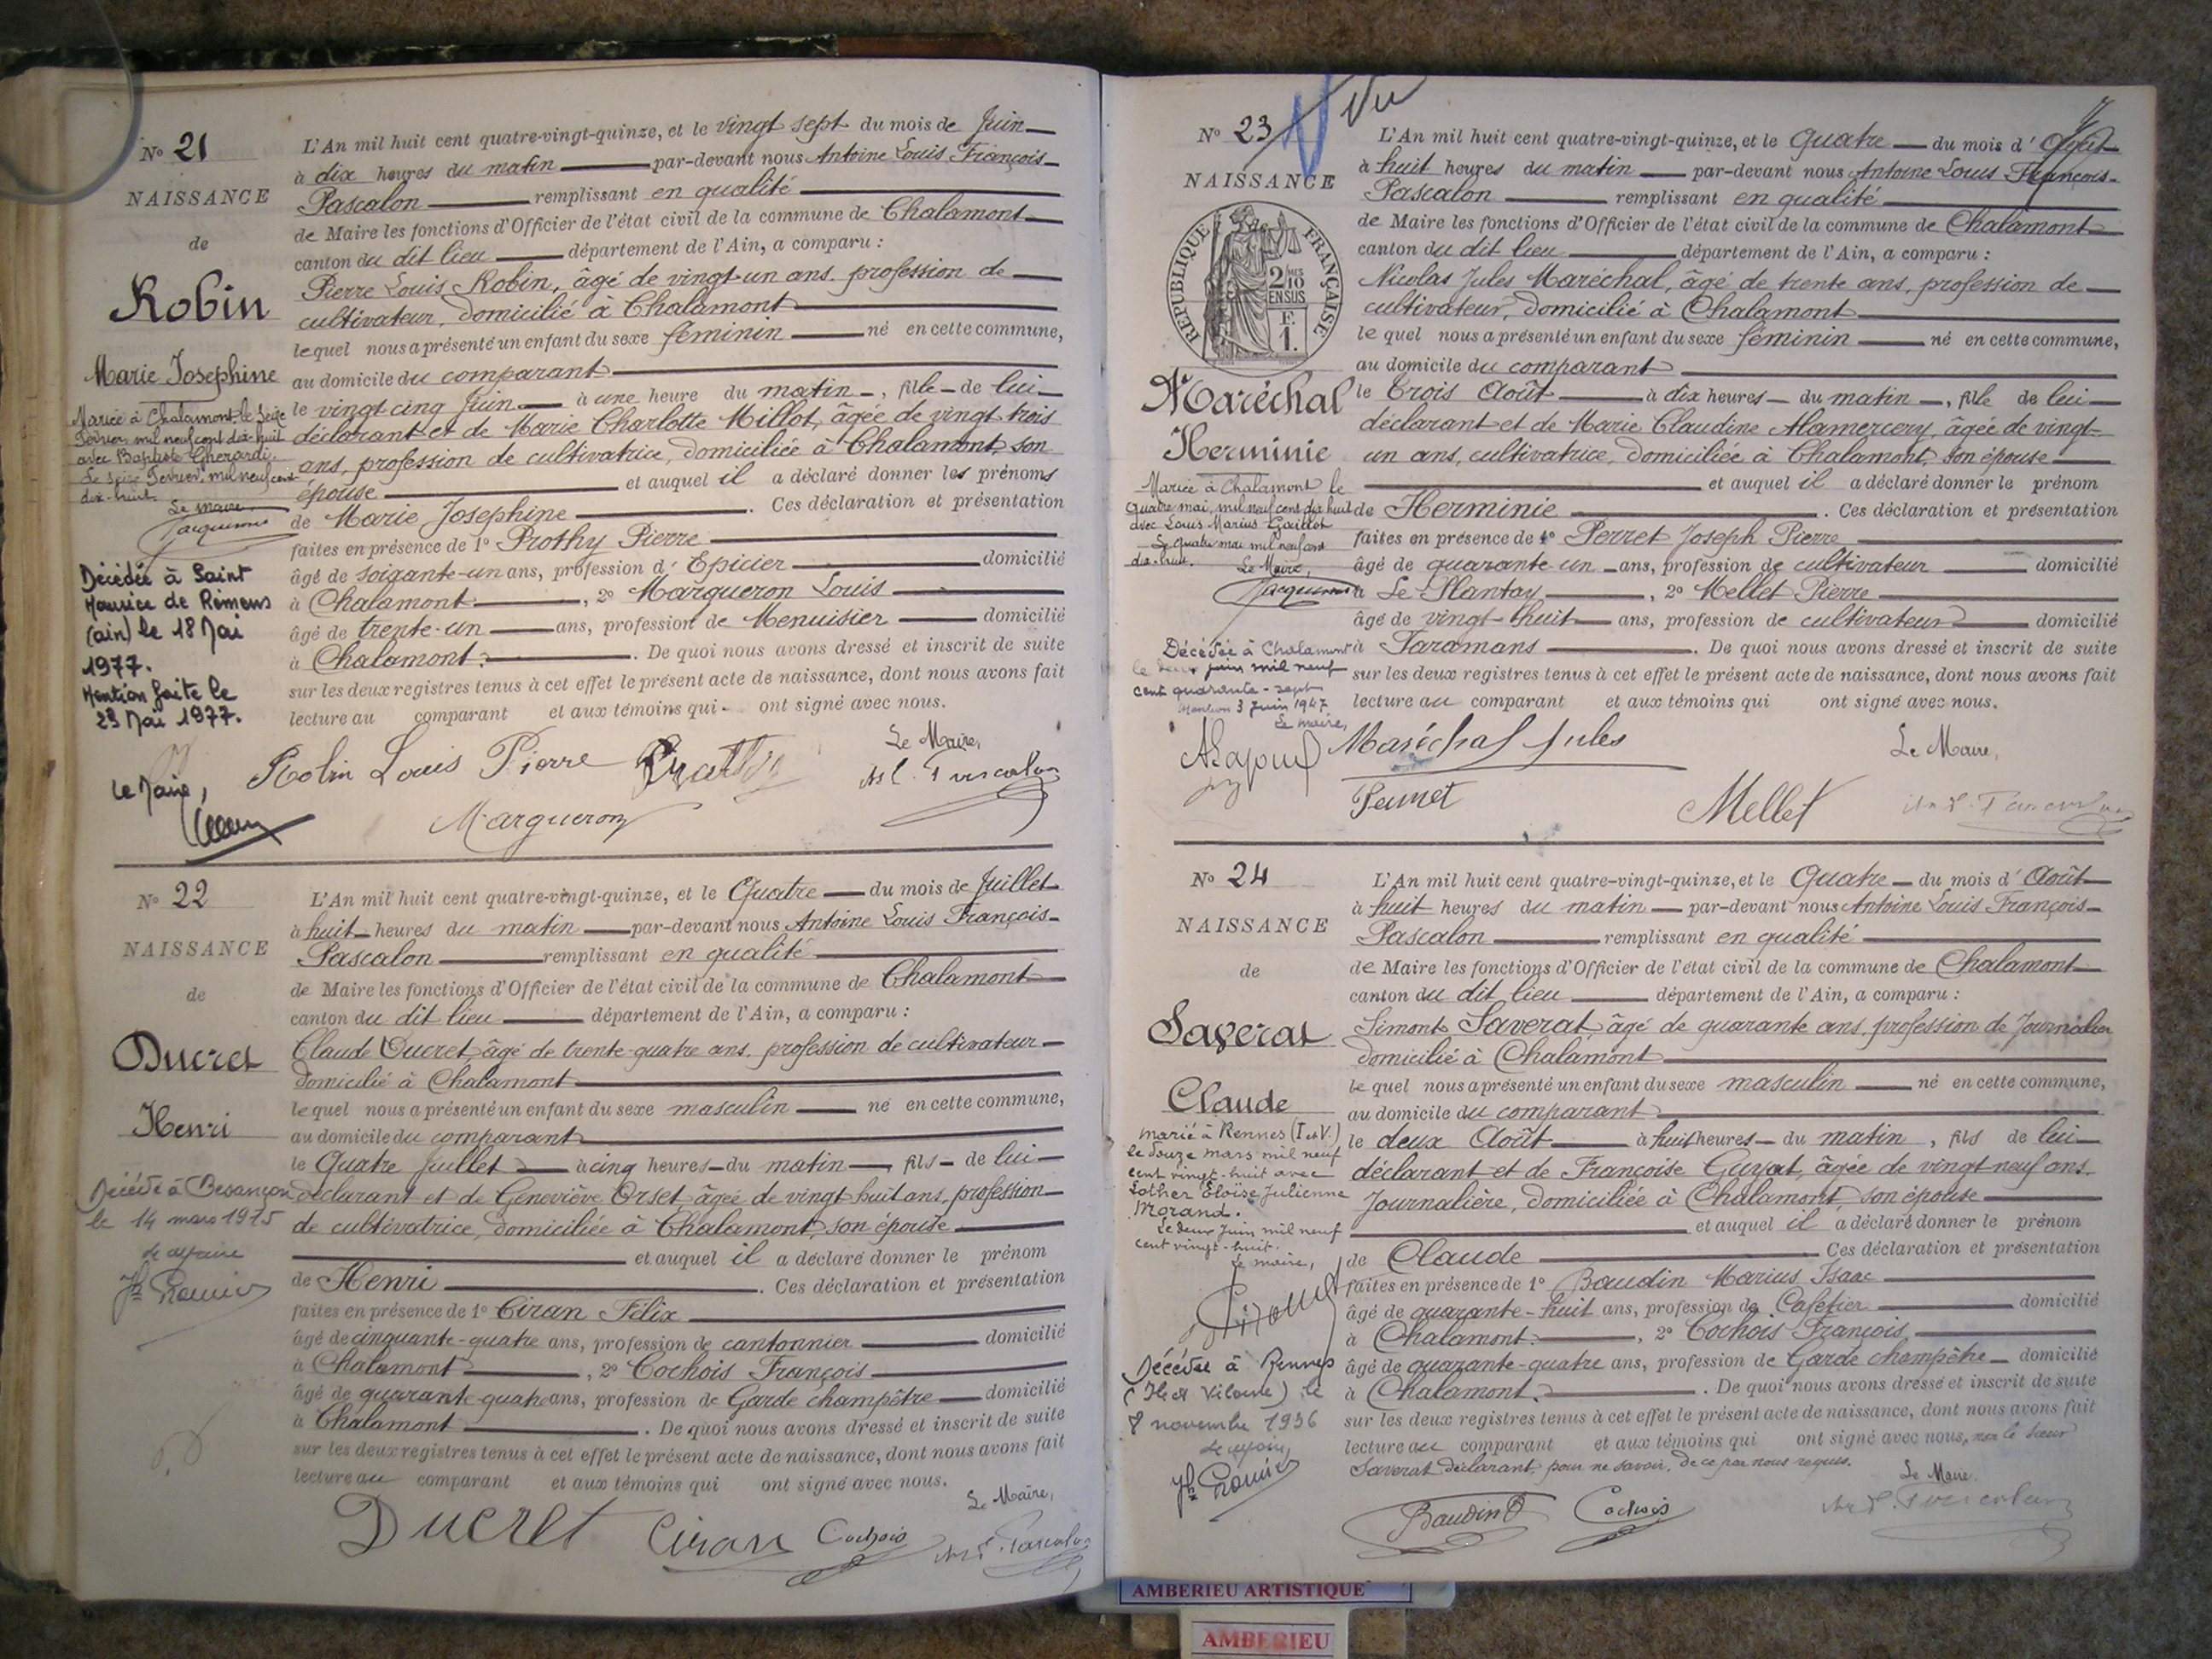 No 21
NAISSANCE
de
Robin
Marie Josephine
Mariée à Chalamont le Seize
Février mil neuf cent dix-huit
avec Baptiste Gherardi.
Le seize Février mil neuf cent
dix-huit.
Le maire
Jacquemin
Décédée à Saint
Maurice de Rémens
(ain) le 18 Mai
1977.
Mention faite le
23 Mai 1977.
le Maire,
L'An mil huit cent quatre-vingt-quinze, et le vingt sept du mois de Juin
à dix heures du matin par-devant nous Antoine Louis François
Pascalon remplissant en qualité
de Maire les fonctions d'Officier de l'état civil de la commune de Chalamont
canton du dit lieu département de l'Ain, a comparu :
Pierre Louis Robin, âgé de vingt-un ans. profession de
cultivateur, domicilié à Chalamont
lequel nous a présenté un enfant du sexe féminin né en cette commune,
au domicile du comparant
le vingt cinq Juin à une heure du matin, fille de lui
déclarant et de Marie Charlotte Millot, âgée de vingt trois
ans, profession de cultivatrice, domiciliée à Chalamont, son
épouse et auquel il a déclaré donner les prénoms
de Marie Josephine. Ces déclaration et présentation
faites en présence de 1º Prothy Pierre
âgé de soixante-un ans, profession d'Epicier domicilié
à Chalamont, 2º Margueron Louis
âgé de trente-un ans, profession de Menuisier domicilié
à Chalamont. De quoi nous avons dressé et inscrit de suite
sur les deux registres tenus à cet effet le présent acte de naissance, dont nous avons fait
lecture au comparant et aux témoins qui ont signé avec nous.
Le Maire,
Robin Louis Pierre Prothy A L Pascalon
Margueron
No 22
NAISSANCE
de
Ducret
Henri
Décédé à Besançon
le 14 mars 1915
L'An mil huit cent quatre-vingt-quinze, et le Quatre du mois de Juillet
à huit heures du matin par-devant nous Antoine Louis François
Pascalon remplissant en qualité
de Maire les fonctions d'Officier de l'état civil de la commune de Chalamont
canton du dit lieu département de l'Ain, a comparu :
Claude Ducret, âgé de trente-quatre ans, profession de cultivateur
domicilié à Chalamont
lequel nous a présenté un enfant du sexe masculin né en cette commune,
au domicile du comparant
le Quatre Juillet à cinq heures du matin, fils de lui
déclarant et de Geneviève Orset, âgée de vingt huit ans, profession
de cultivatrice, domiciliée à Chalamont, son épouse
et auquel il a déclaré donner le prénom
de Henri. Ces déclaration et présentation
faites en présence de 1º Ciran Félix
âgé de cinquante-quatre ans, profession de cantonnier domicilié
à Chalamont, 2º Cochois François
âgé de quarante-quatre ans, profession de Garde champêtre domicilié
à Chalamont. De quoi nous avons dressé et inscrit de suite
sur les deux registres tenus à cet effet le présent acte de naissance, dont nous avons fait
lecture au comparant et aux témoins qui ont signé avec nous.
Le Maire,
Ducret Ciran Cochois A L F. Pascalon
Vu
No 23
NAISSANCE
RÉPUBLIQUE FRANÇAISE
2/10 MES
EN SUS
F.
1.
Maréchal
Herminie
Mariée à Chalamont le
quatre mai mil neuf cent dix huit
avec Louis Marius Gaillot
Le quatre mai mil neuf cent
dix-huit.
Le Maire,
Jacquemin
Décédée à Chalamont
le deux juin mil neuf
cent quarante-sept
Mention 3 Juin 1947
Le maire,
L'An mil huit cent quatre-vingt-quinze, et le Quatre du mois d'Août
à huit heures du matin par-devant nous Antoine Louis François
Pascalon remplissant en qualité
de Maire les fonctions d'Officier de l'état civil de la commune de Chalamont
canton du dit lieu département de l'Ain, a comparu :
Nicolas Jules Maréchal, âgé de trente ans, profession de
cultivateur, domicilié à Chalamont
lequel nous a présenté un enfant du sexe féminin né en cette commune,
au domicile du comparant
le trois Août à dix heures du matin, fille de lui
déclarant et de Marie Claudine Alamercery, âgée de vingt-
un ans, cultivatrice, domiciliée à Chalamont, son épouse
et auquel il a déclaré donner le prénom
de Herminie. Ces déclaration et présentation
faites en présence de 1º Perret Joseph Pierre
âgé de quarante-un ans, profession de cultivateur domicilié
à Le Plantay, 2º Mellet Pierre
âgé de vingt-huit ans, profession de cultivateur domicilié
à Faramans. De quoi nous avons dressé et inscrit de suite
sur les deux registres tenus à cet effet le présent acte de naissance, dont nous avons fait
lecture au comparant et aux témoins qui ont signé avec nous.
Maréchal Jules Le Maire,
Perret Mellet A L F. Pascalon
No 24
NAISSANCE
de
Saverat
Claude
marié à Rennes (I et V.)
le douze mars mil neuf
cent vingt-huit avec
Esther Eloïse Julienne
Morand.
Le deux Juin mil neuf
cent vingt-huit.
Le maire,
Décédé à Rennes
(Ille et Vilaine) le
8 novembre 1936
L'An mil huit cent quatre-vingt-quinze, et le Quatre du mois d'Août
à huit heures du matin par-devant nous Antoine Louis François
Pascalon remplissant en qualité
de Maire les fonctions d'Officier de l'état civil de la commune de Chalamont
canton du dit lieu département de l'Ain, a comparu :
Simont Saverat, âgé de quarante ans, profession de Journalier
domicilié à Chalamont
lequel nous a présenté un enfant du sexe masculin né en cette commune,
au domicile du comparant
le deux Août à huit heures du matin, fils de lui
déclarant et de Françoise Guyat, âgée de vingt neuf ans,
Journalière, domiciliée à Chalamont, son épouse
et auquel il a déclaré donner le prénom
de Claude Ces déclaration et présentation
faites en présence de 1º Baudin Marius Isaac
âgé de quarante-huit ans, profession de Cafetier domicilié
à Chalamont, 2º Cochois François,
âgé de quarante-quatre ans, profession de Garde champêtre domicilié
à Chalamont. De quoi nous avons dressé et inscrit de suite
sur les deux registres tenus à cet effet le présent acte de naissance, dont nous avons fait
lecture au comparant et aux témoins qui ont signé avec nous, non le sieur
Saverat déclarant, pour ne savoir, de ce par nous requis.
Le Maire.
Baudin Cochois A L F. Pascalon
AMBERIEU ARTISTIQUE
AMBERIEU